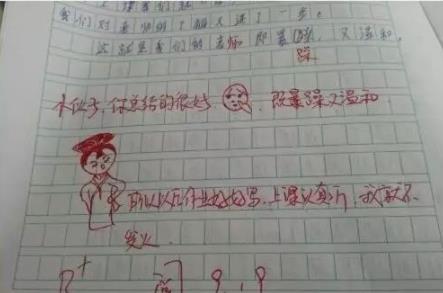 们对老师的了解又进了一步。
这就是我们的老师 即暴躁, 又温和.
躁
小伙子, 你总结的很好 , 既暴躁又温和
所以以后作业好好写, 上课认真听, 我就不
发火.